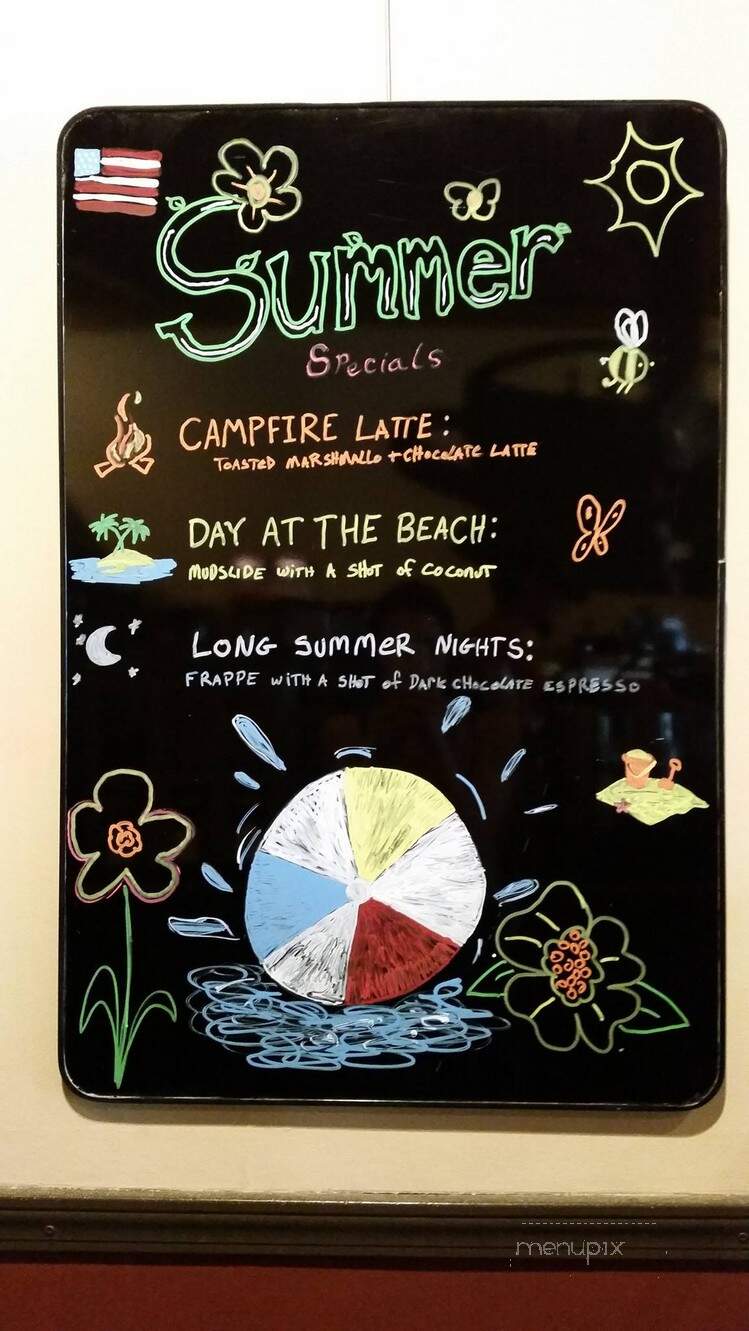 Summer
Specials
CAMPFIRE LATTE:
TOASTED MARSHMALLO + CHOCOLATE LATTE
DAY AT THE BEACH:
MUDSLIDE WITH A SHOT of COCONUT
LONG SUMMER NIGHTS:
FRAPPE WITH A SHOT of DARK CHOCOLATE ESPRESSO
menupix